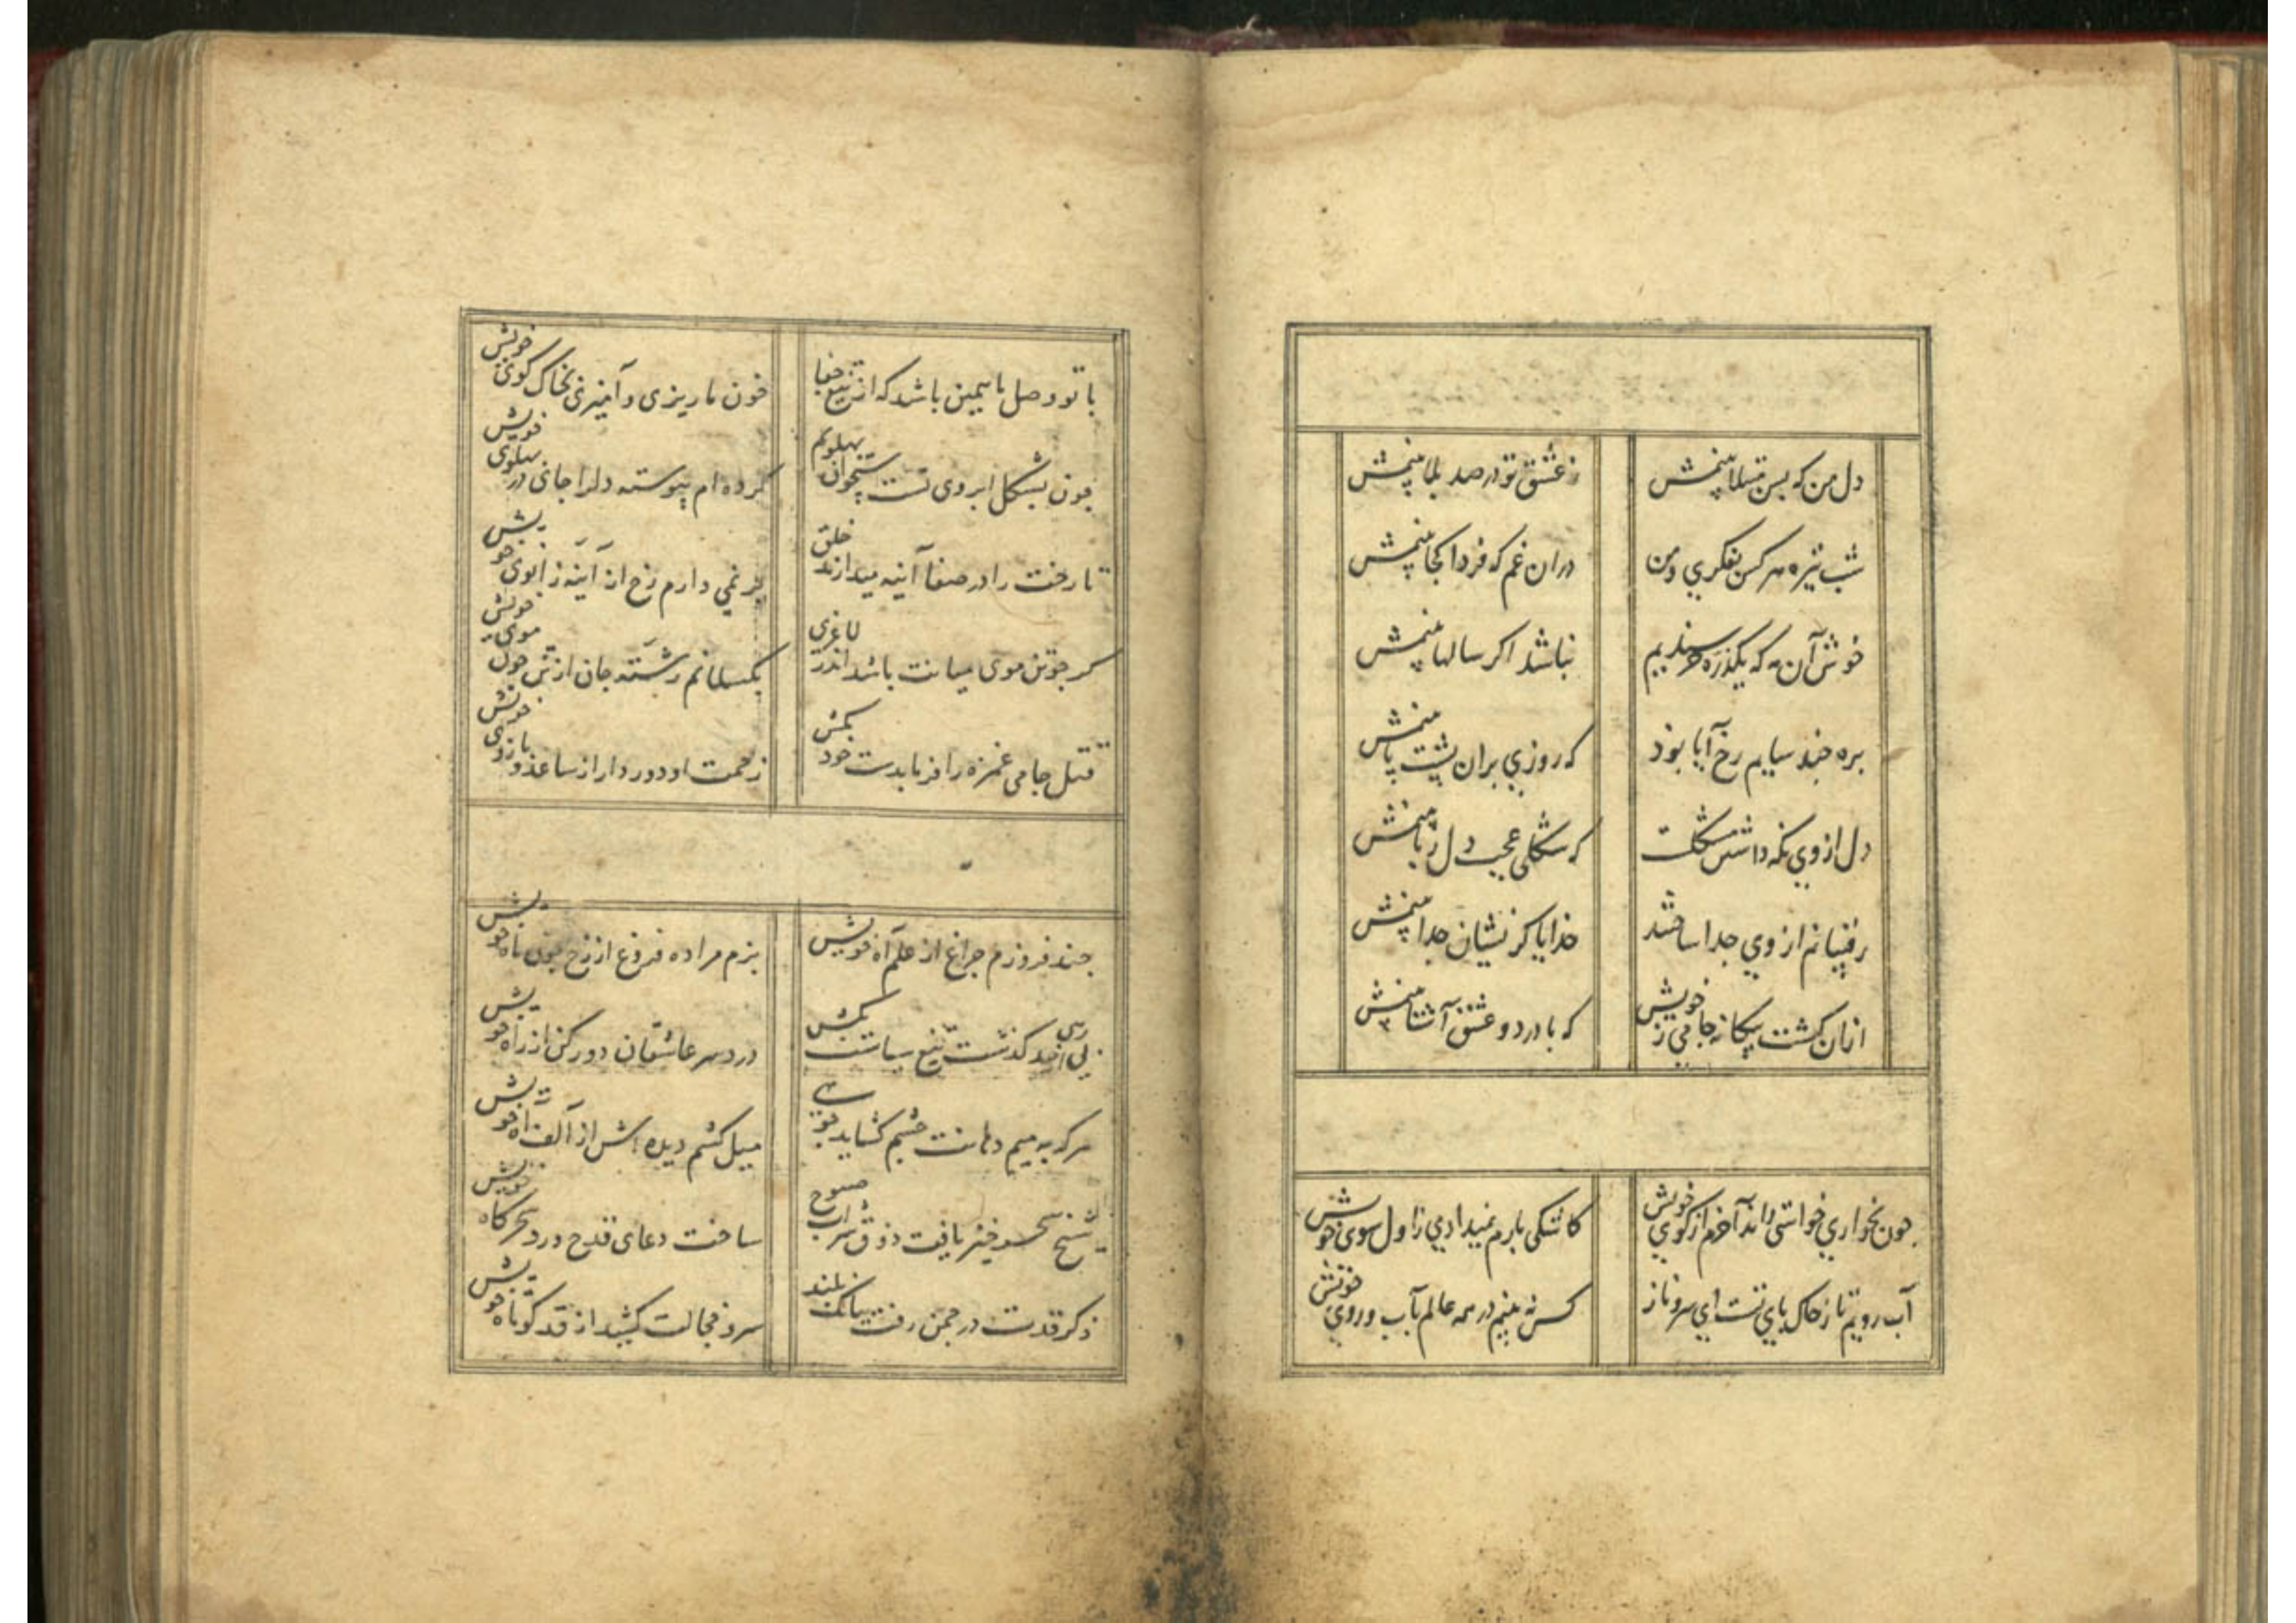 دل من که بس مبتلا بینمش ز عشق تو در صد بلا بینمش
شب تیره هر کس بفکری و من در آن غم که فردا کجا بینمش
خوش آن مه که یکذره نباشد اگر سالها بینمش
بره چند سایم رخ آیا بود که روزی بران پشت پا بینمش
دل از وی نگه داشتن مشکلست که شکلی عجب دل ربا بینمش
رقیبانم از وی جدا ساختند خدایا کزیشان جدا بینمش
ازان گشت بیگانه جامی ز خویش که با درد و عشق آشنا بینمش
چون بخواری خواستی راند آخرم از کوی خویش کاشکی بارم نمیدادی ز اول سوی خویش
آب رویم تا ز خاک پای تست ای سرو ناز کس نه بینم در همه عالم بآب و روی خویش
با تو وصل ما همین باشد که از تیغ جفا خون ما ریزی و آمیزی بخاک کوی خویش
چون بشکل ابروی تست استخوان پهلویم کرده ام پیوسته دلرا جای در پهلوی خویش
تا رخت را در صفا آئینه میدارند خلق بر نمی دارم رخ از آینه زانوی خویش
گر جوتن موی میانت باشد اندر لاغری بکسلانم رشته جان از تن چون موی خویش
قتل جامی غمزه را فرما بدست خود بکش زحمت او دور دار از ساعد و بازوی خویش
چند فروزم چراغ از علم آه خویش بزم مرا ده فروغ از رخ چون ماه خویش
بی از حد گذشت تیغ سیاست بکش درد سر عاشقان دور کن از راه خویش
هر که به میم دهانت چشم گشاید میل کشم دیده اش از الف آه خویش
شیخ سحر خیز یافت ذوق شراب صبوح ساخت دعای قدح ورد سحرگاه خویش
ذکر قدت در چمن رفت ببانک بلند سرو خجالت کشید از قد کوتاه خویش